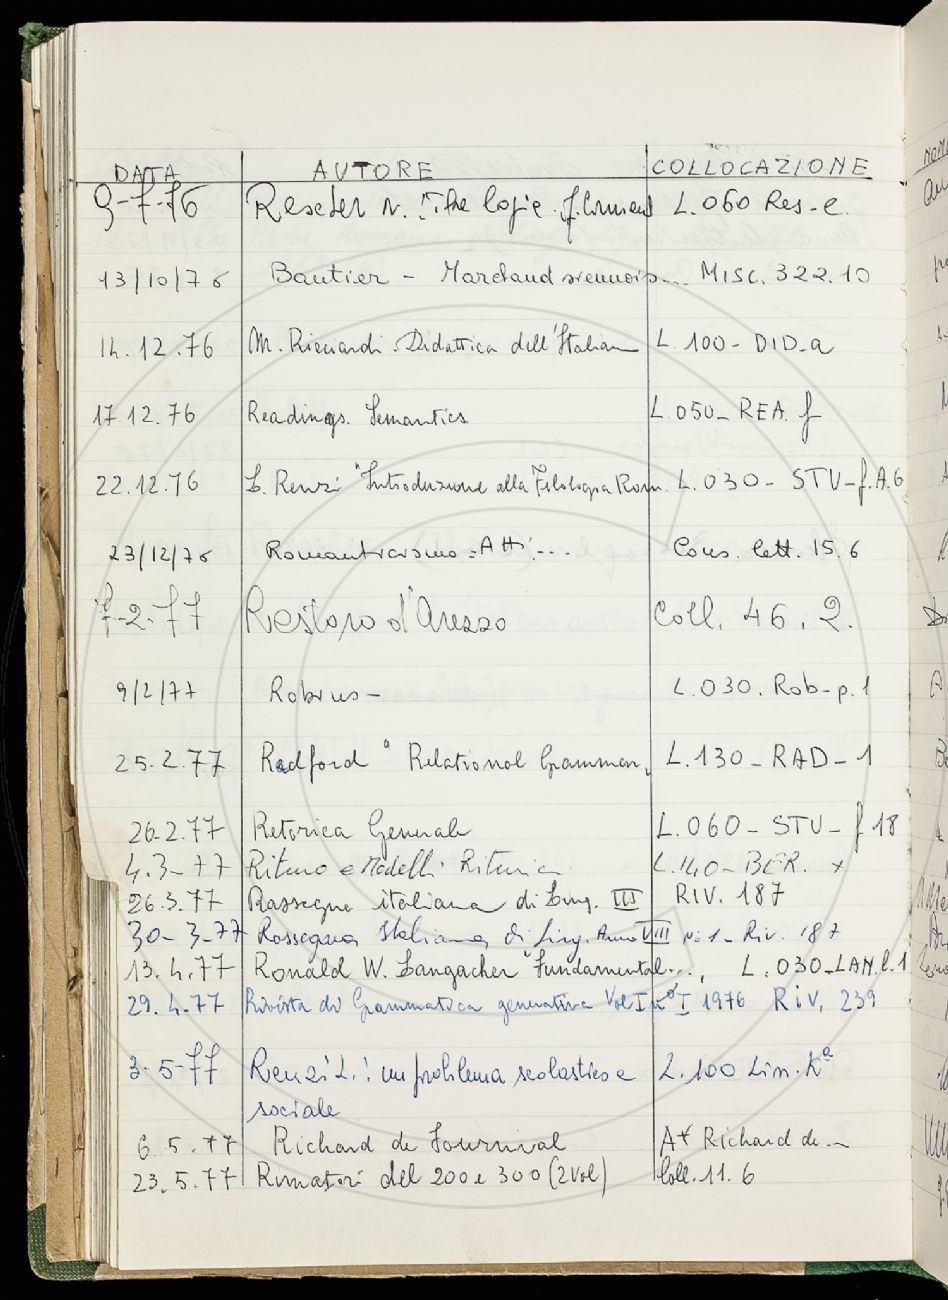 DATA AUTORE COLLOCAZIONE
9-7-76 Rescher N. The logic of L. 060 Res-e.
13/10/76 Bautier - Marchands siennois... MISC. 322.10
14.12.76 M. Ricciardi Didattica dell'Italian L. 100 - DID-a
17.12.76 Readings. Semantics L. 050 - REA. f
22.12.76 L. Renzi "Introduzione alla Filologia Rom. L. 030 - STU-f.A.6
23/12/76 Romanticismo: Atti... Cons. lett. 15.6
7-2-77 Restoro d'Arezzo Coll. 46.2.
9/2/77 Robins - L. 030. Rob-p.1
25.2.77 Radford "Relational Grammar" L. 130 - RAD - 1
26.2.77 Retorica Generale L. 060 - STU - f 18
4.3-77 Ritmo e Modelli Ritmici L. 140 - BER.
26.3.77 Rassegna italiana di Ling. III RIV. 187
30-3-77 Rassegna Italiana di Ling. Anno VIII n. 1 - Riv. 187
13.4.77 Ronald W. Langacker "Fundamental..., L. 030-LAN.l.1
29.4.77 Rivista di Grammatica generativa Vol I n° I 1976 RIV. 239
3-5-77 Renzi L.: un problema scolastico e L. 100 Lin. Kª
sociale
6.5.77 Richard de Fournival A* Richard de...
23.5.77 Rimatori del 200 e 300 (2 Vol) Coll. 11.6